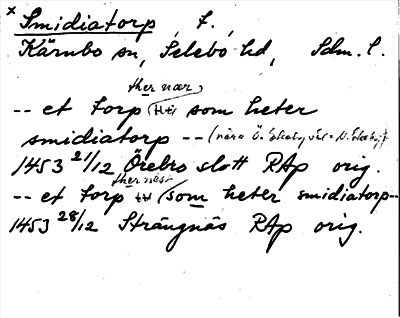 x Smidiatorp, t.,
Kärnbo sn, Selebo hd, Sdm. l.
ther nær
-- et torp som heter
smidiatorp -- (nära Ö.
1453 21/12 Örebro slott RAp orig.
ther næst
-- et torp som heter smidiatorp --
1453 28/12 Strängnäs RAp orig.